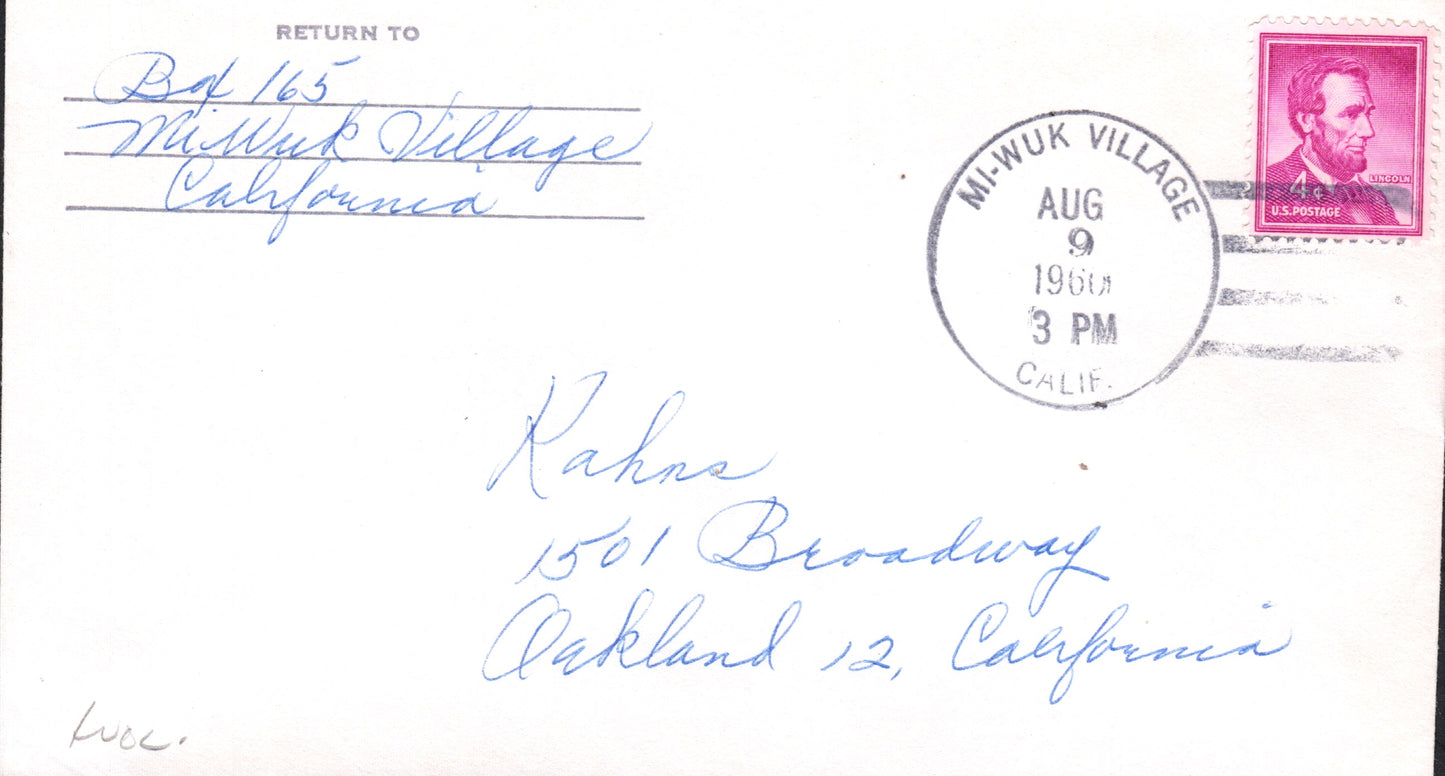 RETURN TO
Box 165
Mi-Wuk Village
California
MI-WUK VILLAGE
AUG
9
1960
3 PM
CALIF.
4¢
LINCOLN
U.S. POSTAGE
Kahns
1501 Broadway
Oakland 12, California